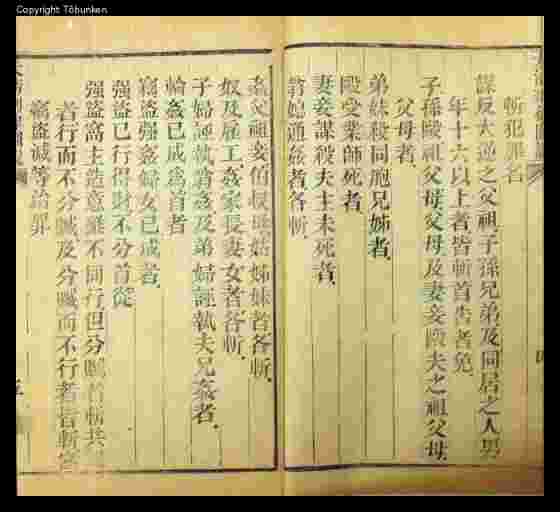 Copyright Tōbunken
斬犯罪名
謀反大逆之父祖子孫兄弟及同居之人男
年十六以上者皆斬首告者免
子孫毆祖父母父母及妻妾毆夫之祖父母
父母者
弟妹殺同胞兄姊者
毆受業師死者
妻妾謀殺夫主未死者
翁媳通姦者各斬
姦父祖妾伯叔母姑姊妹者各斬
奴及雇工姦家長妻女者各斬
子婦誣執翁姦及弟婦誣執夫兄姦者
輪姦已成為首者
竊盜强姦婦女已成者
强盜已行得財不分首從
强盜窩主造意雖不同行但分贓者斬共
者行而不分贓及分贓而不行者皆斬
竊盜
等
罪